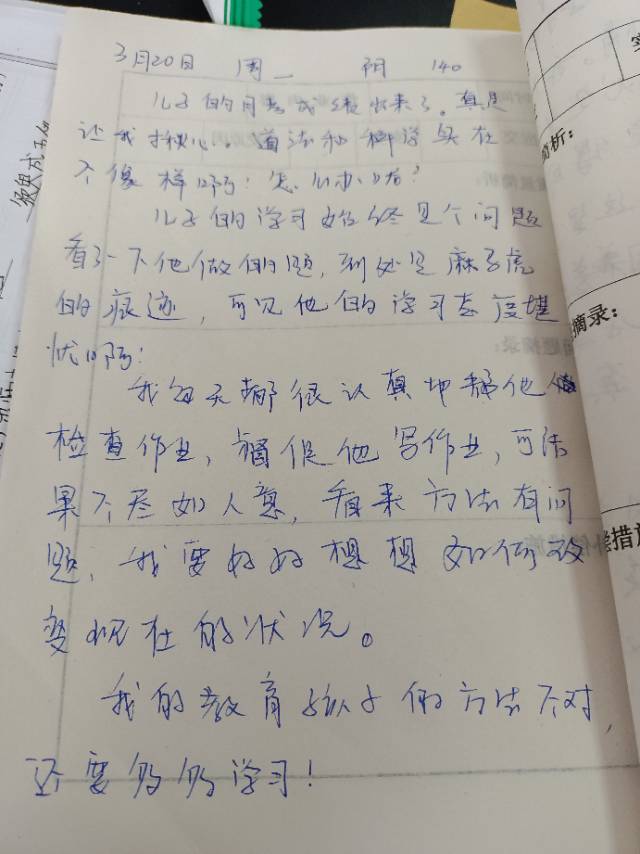 3月20日 周一 阴 140
儿子的月考成绩出来了。真是
让我揪心。道法和科学实在
不像样啊！怎么办呢？
儿子的学习始终是个问题
看了一下他做的题，到处是麻子虎
的痕迹，可见他的学习态度堪
忧啊！
我每天都很认真地帮他
检查作业，督促他写作业，可结
果不尽如人意，看来方法有问
题，我要好好想想如何改
变现在的状况。
我的教育孩子们方法不对，
还要好好学习！
简析：
摘录：
措施